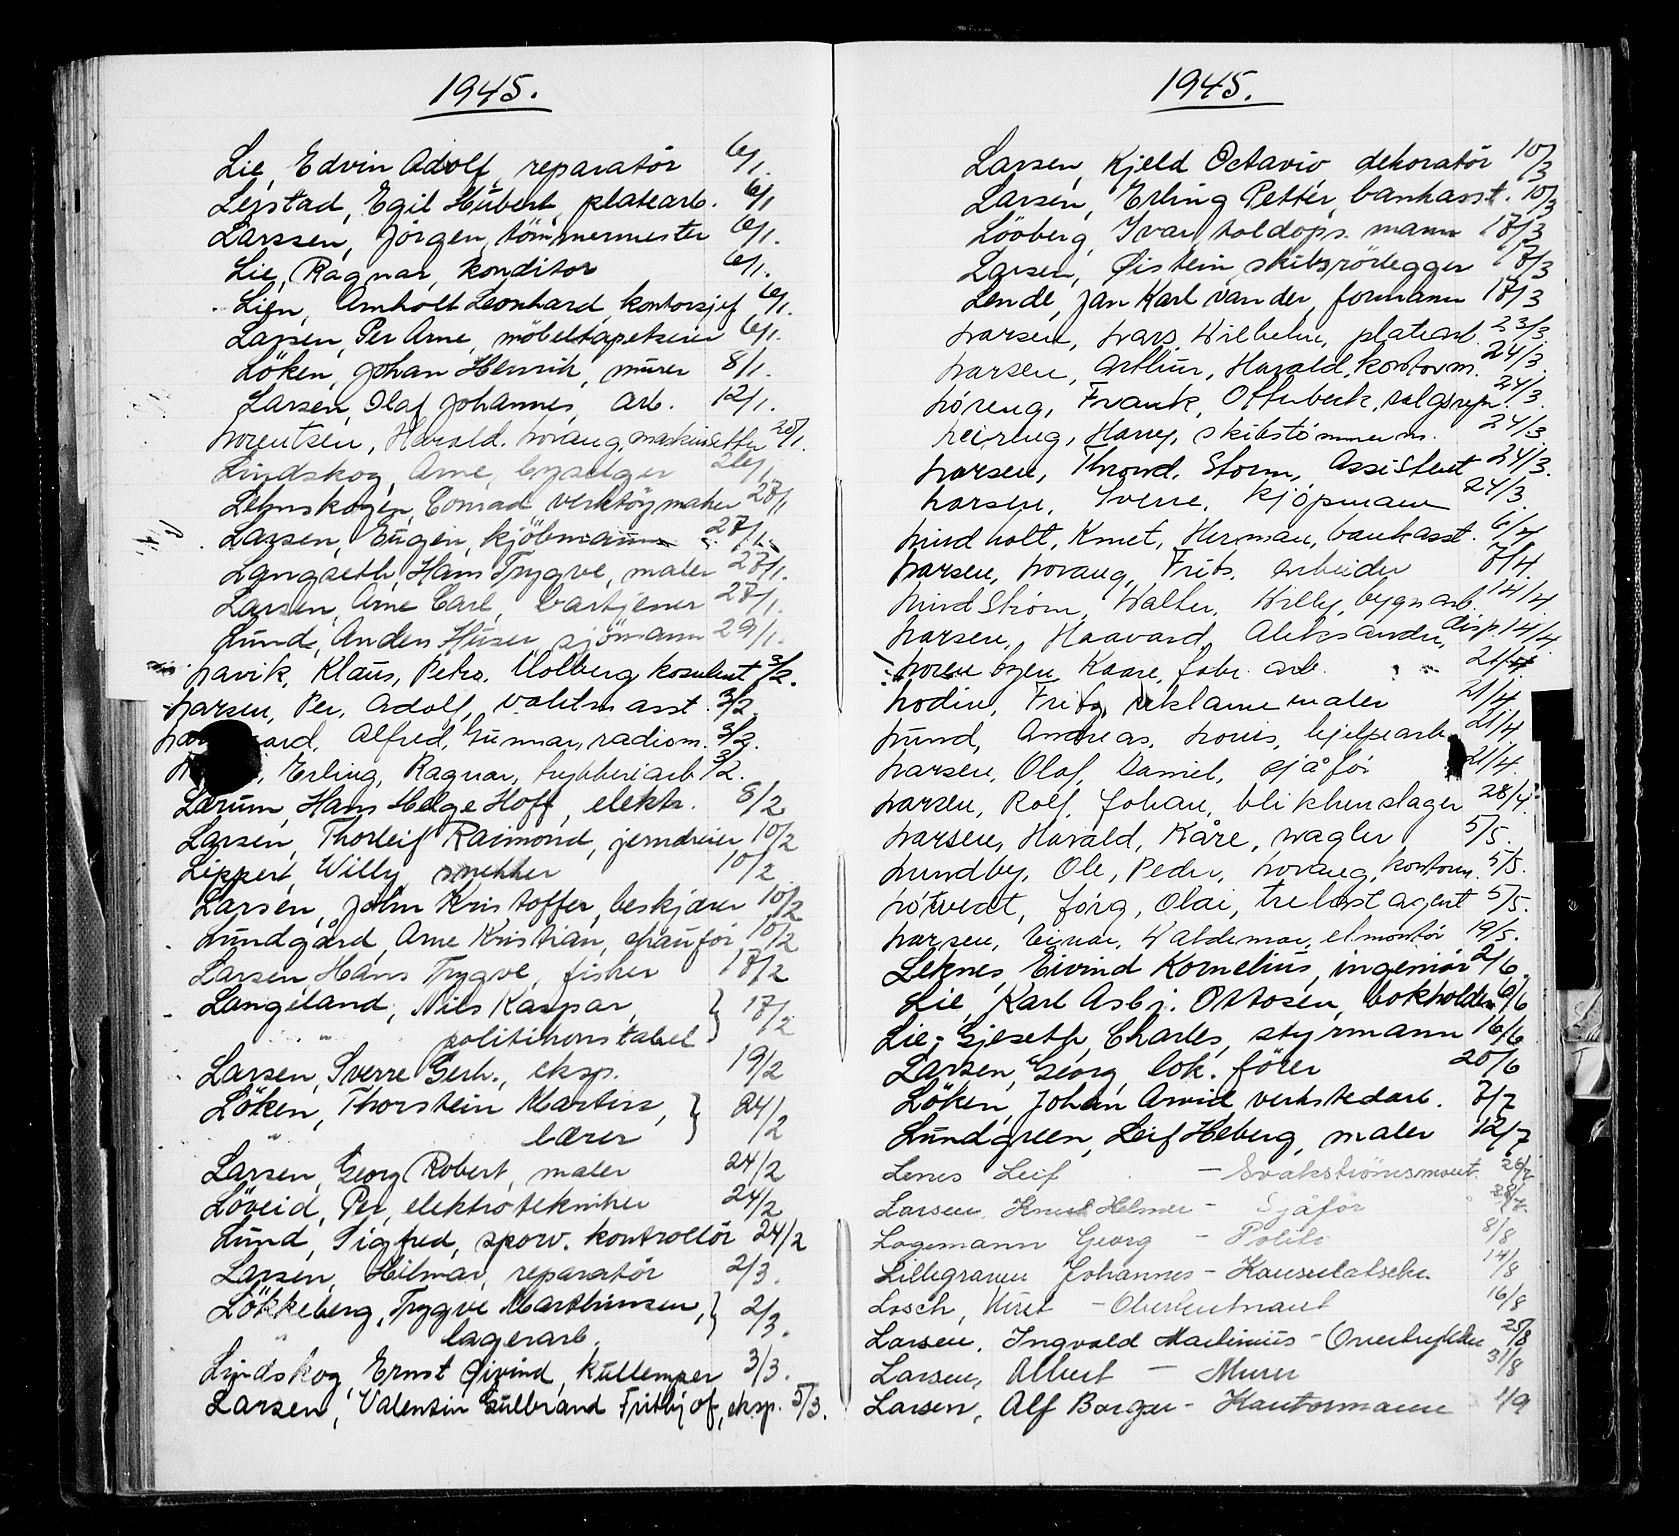 1945.
Lie, Edvin Adolf, reparatör 6/1.
Leistad, Egil Hubert, platearb. 6/1
Larssen, Jörgen, tömmermester 6/1.
Lie, Ragnar, konditor 6/1.
Lien, Arnholt Leonhard, kontorsjef 6/1.
Larsen, Per Arne, möbeltapetserer 6/1.
Löken, Johan Henrik, murer 8/1.
Larsen, Olaf Johannes, arb. 12/1.
Lorentsen, Harald. Lorang, maskinsetter 20/1.
Lindskog, Arne, 26/1
Lehnskogen, Conrad verktöymaker 27/1
Larsen, Eugen, kjöbmann 27/1.
Langseth, Hans Trygve, maler 27/1.
Larsen, Arne Carl, bartjener 27/1.
Lund, Anders Huser, sjömann 29/1.
Lavik, Klaus, Petro. Molberg 3/2.
Larsen, Per, Adolf, vaktm asst. 3/2.
Alfred, Gunnar, radiom. 3/2.
Erling, Ragnar, trykkeriarb. 3/2.
Lærum, Hans Helge Hoff, elektr. 8/2
Larsen, Thorleif Raimond, jerndreier 10/2
Lippert, Willy, snekker 10/2
Larsen, John Kristoffer, beskjærer 10/2
Lundgård, Arne Kristian, chauför, 10/2
Larsen, Hans Trygve, fisker 17/2
Langeland, Nils Kaspar, } 17/2
" politikonstabel
Larsen, Sverre Gerh., eksp. 19/2
Löken, Thorstein Martin, } 24/2
" lærer
Larsen, Georg Robert, maler 24/2
Löveid, Per, elektrotekniker 24/2
Lund, Sigfred, sporv. kontrollör 24/2
Larsen, Hilmar, reparatör 2/3.
Lökkeberg, Trygve Marthinsen, } 2/3.
" lagerarb.
Lindskog, Ernst Øivind, kullemper 3/3.
Larsen, Valentin Gulbrand Fritbjof, eksp. 5/3.
1945.
Larsen, Kjeld Octavio, dekoratör 10/3
Larsen, Erling Petter, bankasst. 10/3
Lövberg, Ivar, toldops. mann 17/3
Larsen, Øistein, skibsrörlegger 17/3
Lende, Jan Karl van der, formann 17/3
Larsen, Lars, Wilhelm, platearb. 23/3.
Larsen, Arthur, Harald, kontorm. 24/3.
Løreng, Frank, Offenbeck, salgsrepr. 24/3.
Harry, skibstømmerm. 24/3.
Larsen, Thrond, Storm, Assistent 24/3.
Larsen, Sverre, Kjøpmann 24/3.
Lindholt, Knut, Herman, bankasst. 6/4.
Larsen, Lorang, Frits, arbeider 7/4.
Lind Strøm, Walter, Willy, bygn arb. 14/4.
Larsen, Haavard, Aleksander, disp. 14/4.
Kaare, fabr. arb. 21/4
Lodin, Fritz, reklamemaler 21/4
Lund, Andreas, Louis, hjelpearb. 21/4
Larsen, Olaf, Daniel, sjåfør 21/4.
Larsen, Rolf, Johan, blikkenslager 28/4.
Larsen, Harald, Kåre, wagler, 5/5.
Lundby, Ole, Peder, Lorang, kontorm. 5/5.
Løtvedt, Jørg, Olai, trelast agent 5/5.
Larsen, Einar, Waldemar, el montör 19/5.
Leknes, Eivind Kornelius, ingeniör 2/6.
Lie, Karl Asbj. Ottosen, bokholder 6/6
Lie-Gjeseth, Charles, styrmann 16/6
Larsen, Georg, lok. förer 20/6
Löken, Johan Arvid, verkstedarb. 7/7
Lundgreen, Leif Heberg, maler 12/7
Lenes Leif - Svakströmsmont. 26/7
Larsen, Knut Helmer - Sjåför 28/7
Lagemann Georg - Politi 8/8
Lillegraven Johannes - 14/8
Losch, Kurt - Oberleutnant 16/8
Larsen, Ingvald Martinius - 25/8
Larsen, Albert - Murer 31/8
Larsen, Alf Borger - Kontormann 1/9